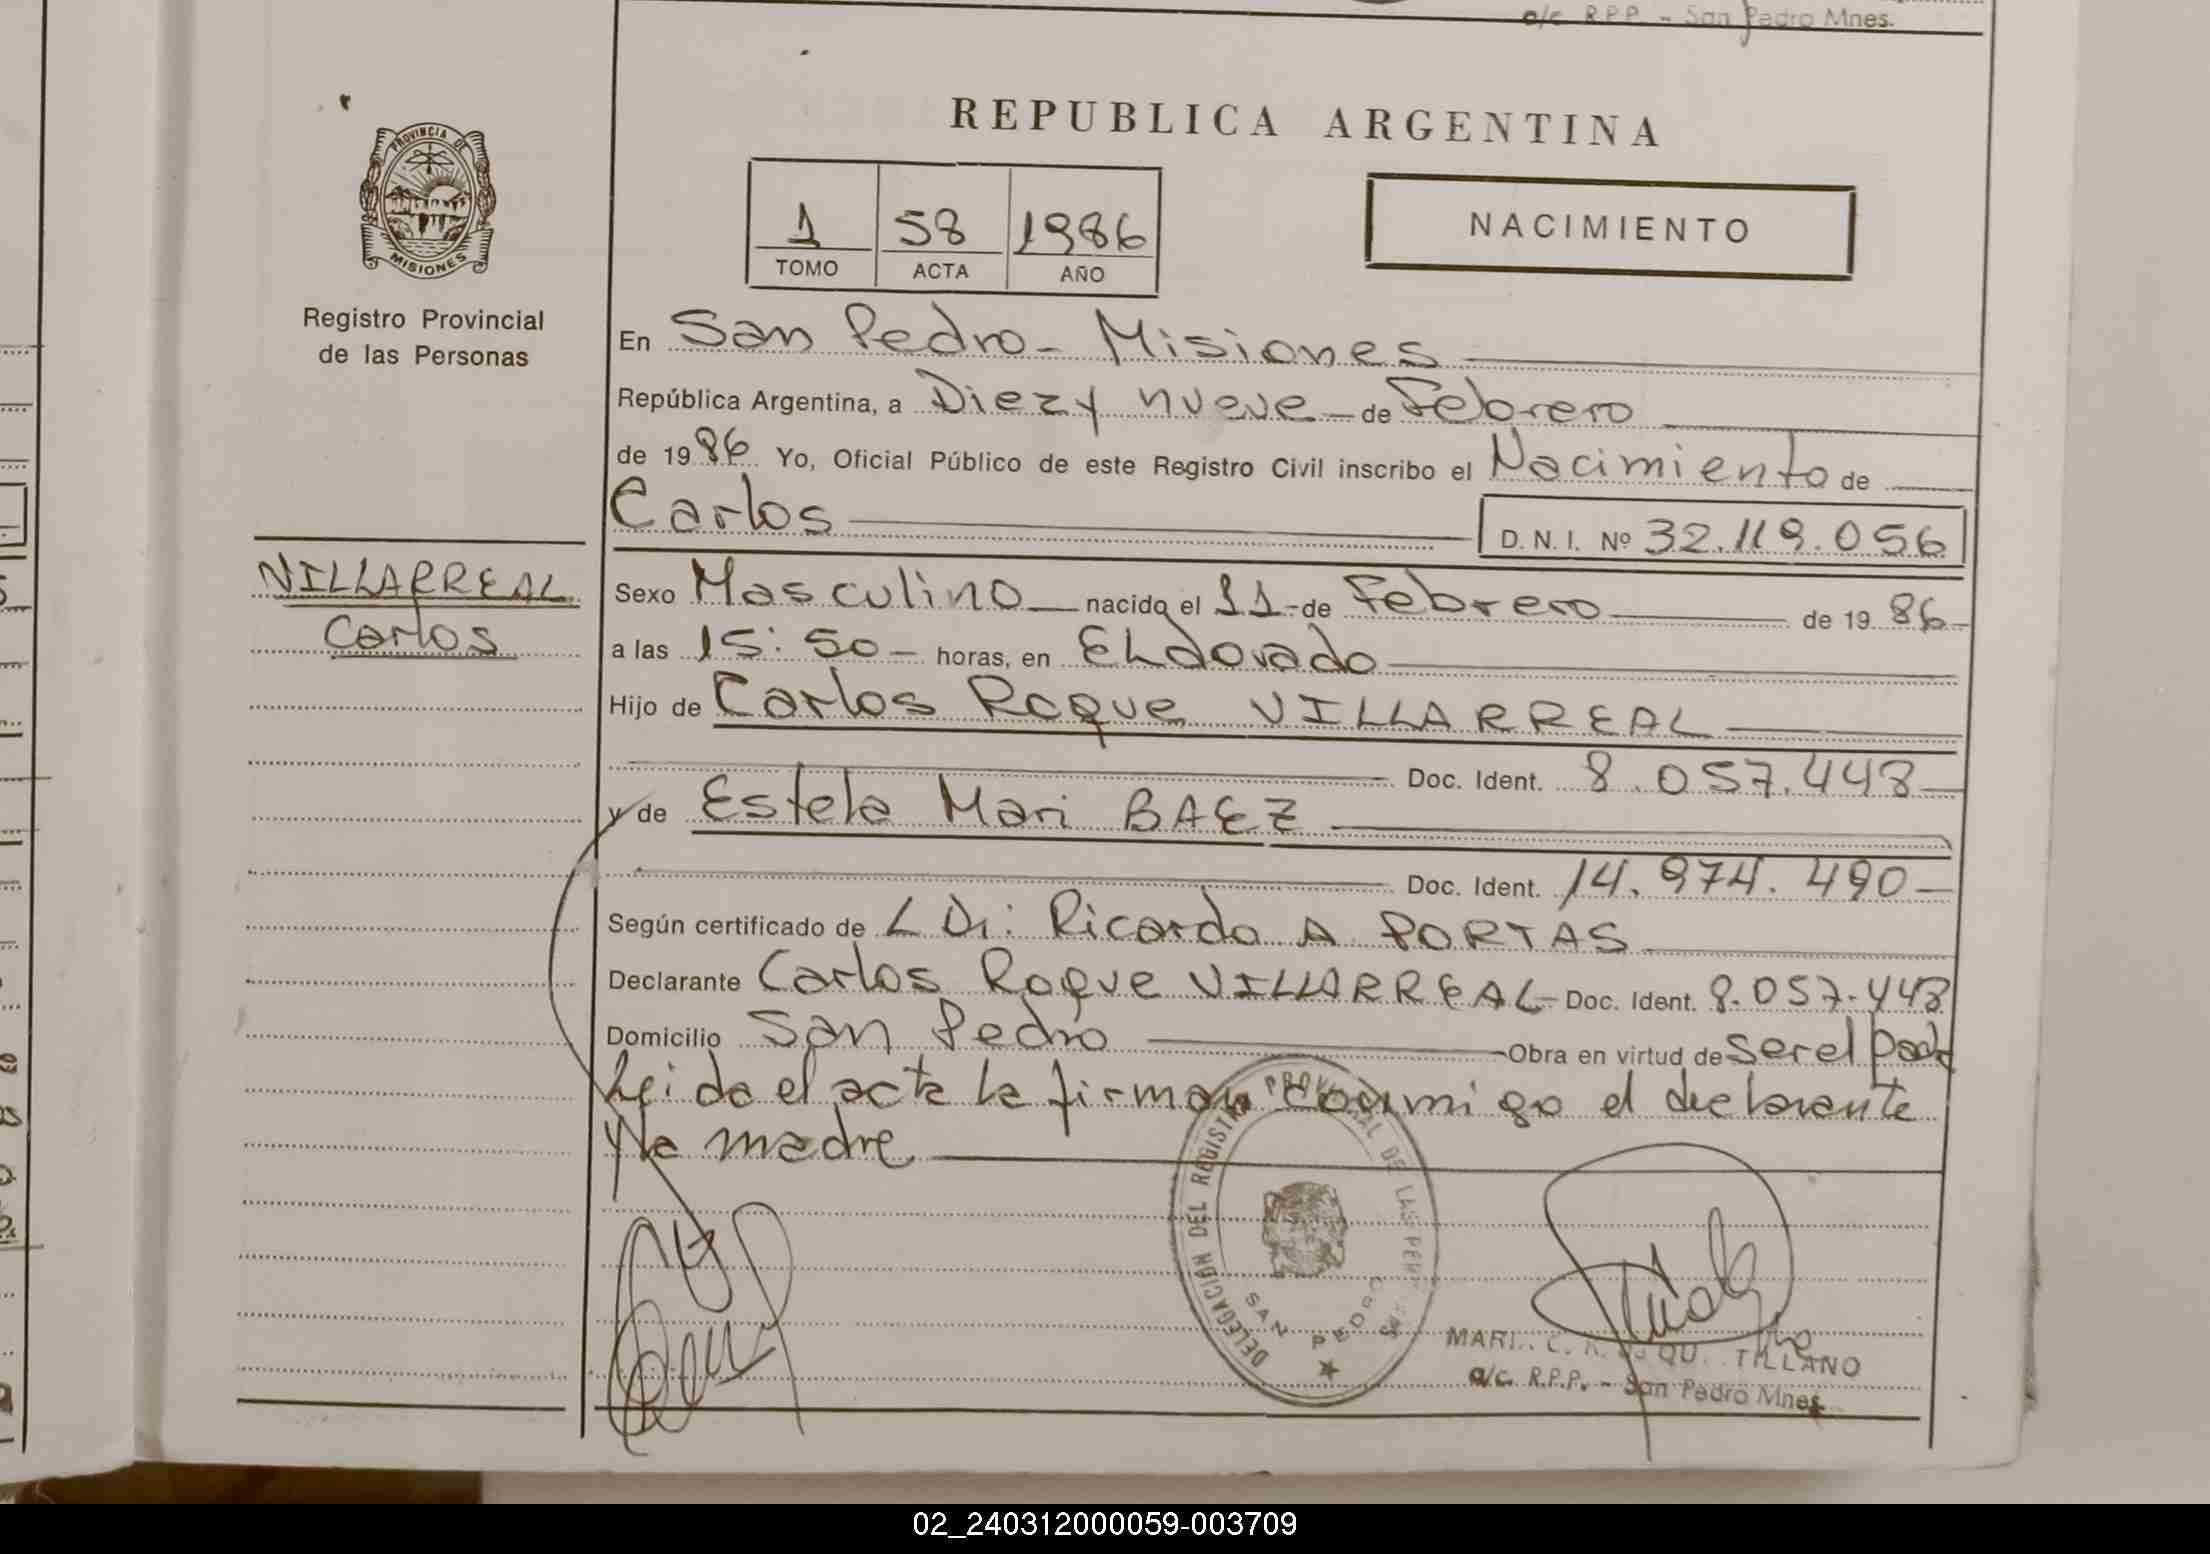 a/c R.P.P. - San Pedro Mnes.
REPUBLICA ARGENTINA
PROVINCIA DE
MISIONES
Registro Provincial
de las Personas
1 58 1986
TOMO ACTA AÑO
NACIMIENTO
En San Pedro - Misiones
República Argentina, a Diez y nueve - de Febrero
de 1986 Yo, Oficial Público de este Registro Civil inscribo el Nacimiento de
Carlos
D. N. I. Nº 32.119.056
VILLARREAL
Carlos
Sexo Masculino nacido el 11 - de Febrero de 1986
a las 15:50 - horas, en ELdorado
Hijo de Carlos Roque VILLARREAL
Doc. Ident. 8.057.448
y de Estela Mari BAEZ
Doc. Ident. 14.974.490
Según certificado de L Dr: Ricardo A PORTAS
Declarante Carlos Roque VILLARREAL - Doc. Ident. 8.057.448
Domicilio San Pedro Obra en virtud de ser el padre
Leida el acta la firman conmigo el declarante
y la madre
DELEGACION DEL REGISTRO PROVINCIAL DE LAS
SAN PEDRO
TILLANO
a/c. R.P.P. - San Pedro Mnes.
02_240312000059-003709